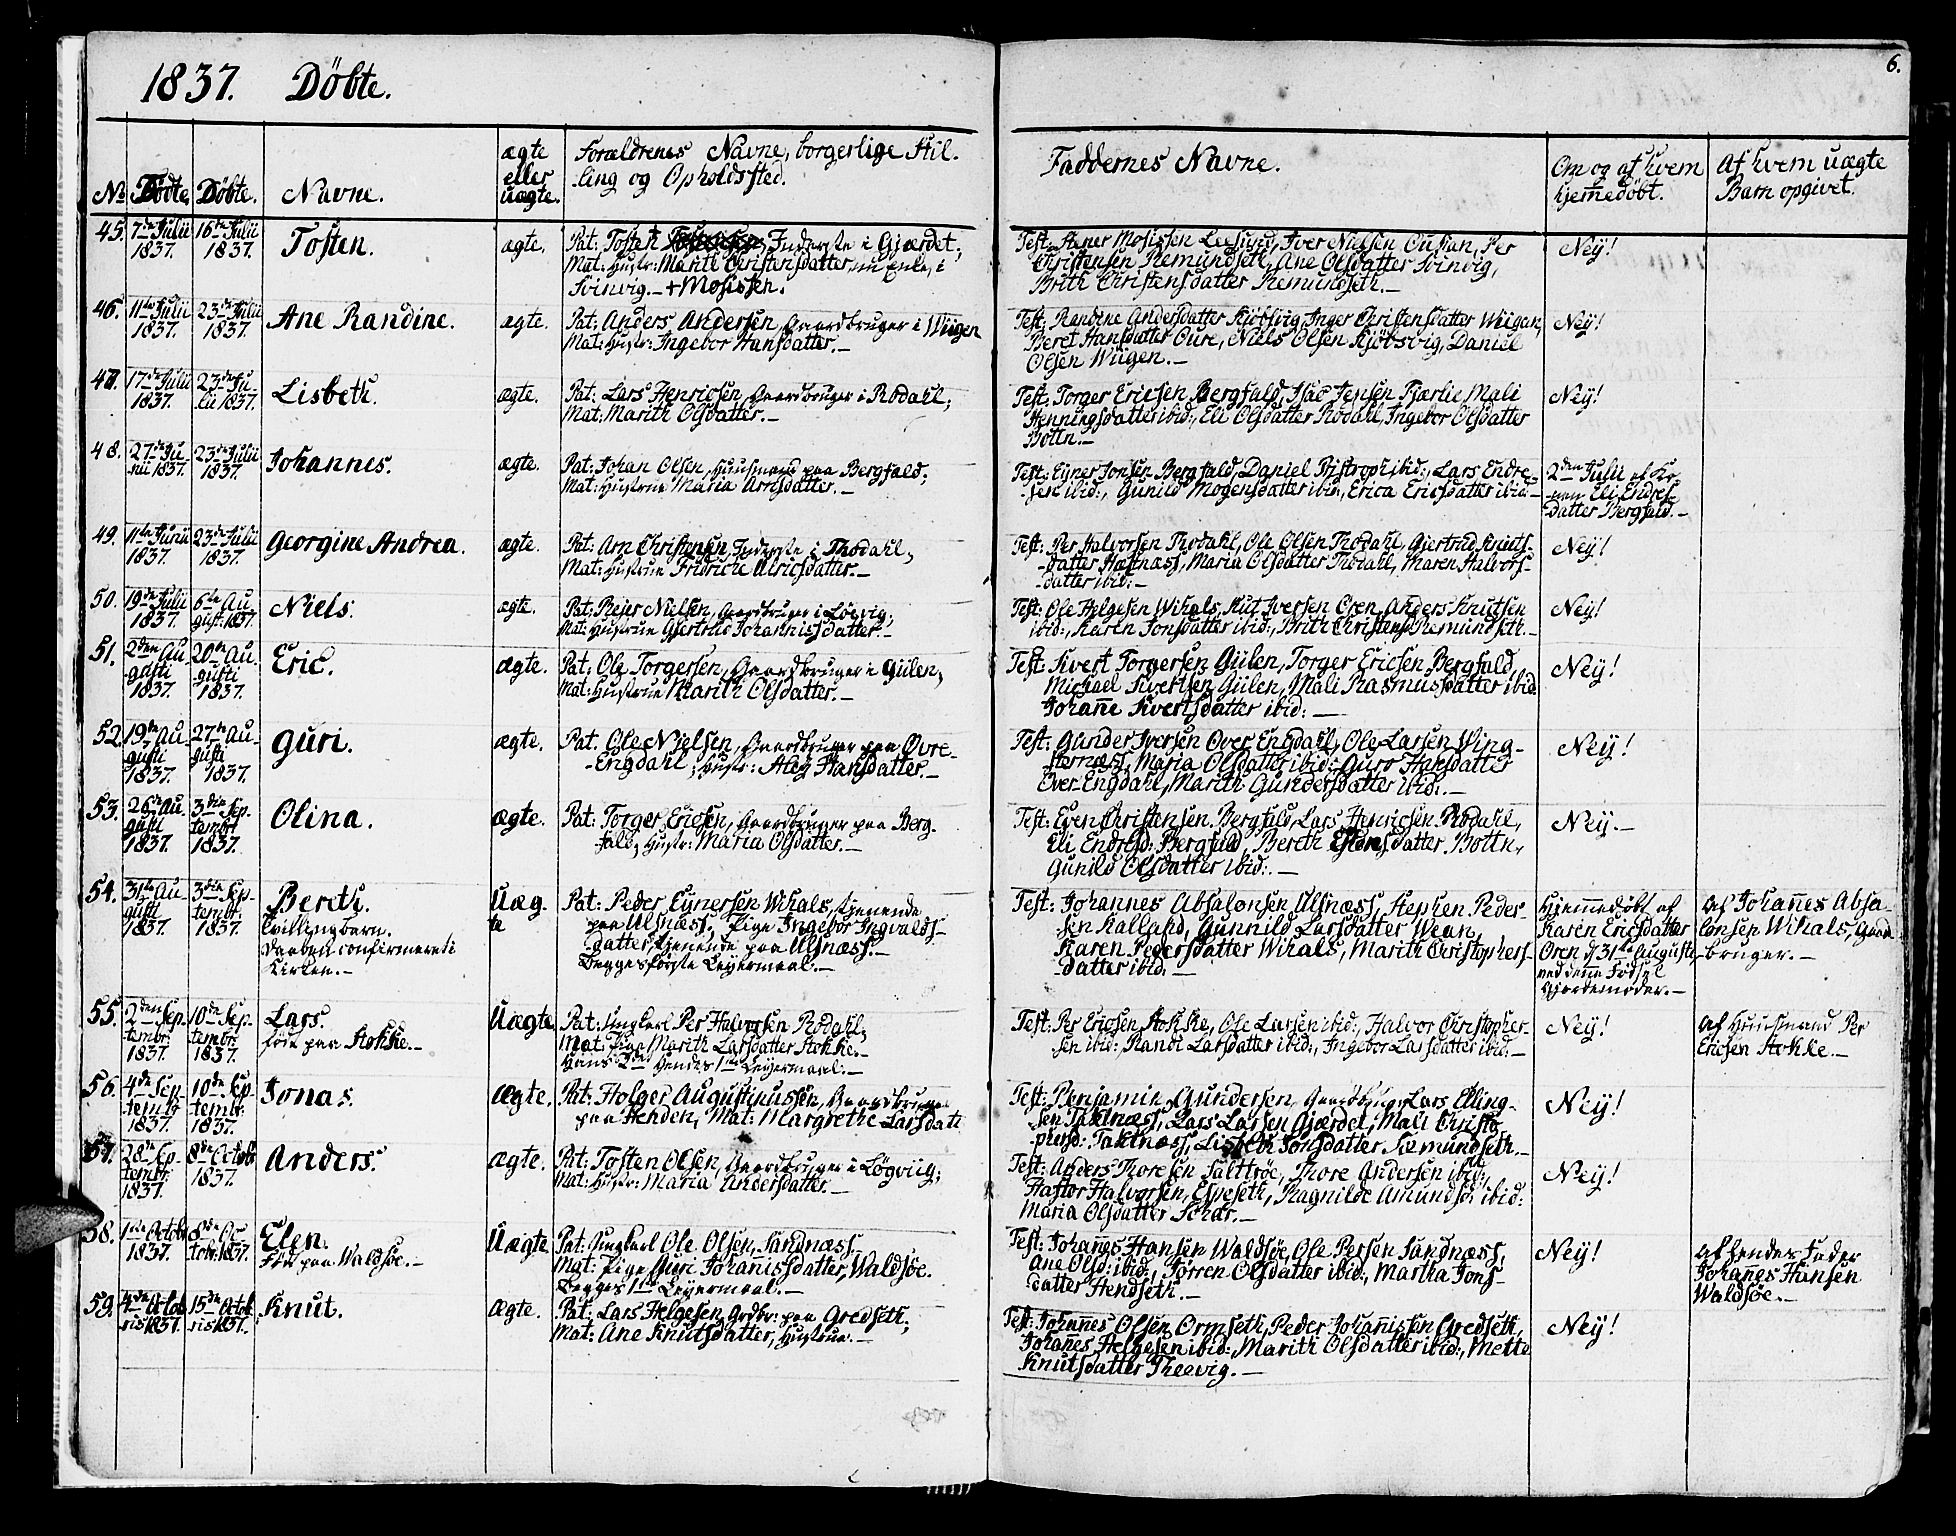 1837. Döbte.
6.
No Födte. Döbte. Navne.
ægte eller uægte.
Forældrenes Navne, borgerlige Stil-
ling og Opholdssted.
Faddernes Navne.
Om og af hvem
hjemedöbt.
Af hvem uægte
Barn opgivet.
45. 7de Julii 1837. 16de Julii 1837. Tosten. ægte.
Pat: Tosten Inderste i Gjærdet;
Mat: Hustr: Marith Christensdatter, nu Enke, i
Svinvig. - + Mosissen.
Test: Stener Mosissen Leesund, Iver Nielsen Ouskan, Per
Christensen Remundseth, Ane Olsdatter Svinvig,
Brith Christensdatter Remundseth. -
Ney!
46. 11te Julii 1837. 23de Julii 1837. Ane Randine. ægte.
Pat: Anders Andersen, Gaardbruger i Wiigen
Mat: Hustr: Ingebor Hansdatter. -
Test: Randine Andersdatter Kjöbsvig, Inger Christensdatter Wiigan,
Beret Hansdatter Oure, Niels Olsen Kjöbsvig, Daniel
Olsen Wiigen. -
Ney!
47. 17de Julii 1837. 23de Ju-
lii 1837. Lisbeth. ægte.
Pat: Lars Henricsen, Gaardbruger i Rodahl;
Mat: Marith Olsdatter. -
Test: Torger Ericsen Bergfald, Isac Jensen Fjærlie, Mali
Henningsdatter ibid:, Eli Olsdatter Rodahl, Ingebor Olsdatter
Bottn. -
Ney!
48. 27de Ju-
nii 1837. 23de Julii 1837. Johannes. ægte.
Pat: Johan Olsen, Huusmand paa Bergfald;
Mat: Hustrue Maria Arnsdatter. -
Test: Eyner Jonsen Bergfald, Daniel Bistroph ibid:, Lars Endre-
sen ibid:, Gunild Mogensdatter ibid:, Erica Ericsdatter ibid: -
2den Julii af Ko-
nen Eli Endres-
datter Bergfald. -
49. 11te Junii 1837. 23de Julii 1837. Georgine Andrea. ægte.
Pat: Arn Christensen, Inderste i Thodahl;
Mat: Hustrue Fridriche Ulricsdatter. -
Test: Per Halvorsen Thodahl, Ole Olsen Thodahl, Gjertrud Knuts-
datter Hestnæss, Maria Olsdatter Thodahl, Maren Halvors-
datter ibid: -
Ney!
50. 19de Julii 1837. 6te Au-
gust: 1837. Niels. ægte.
Pat: Reier Nielsen, Gaardbruger i Löevig;
Mat: Hustrue Gjertrud Johannisdatter. -
Test: Ole Helgesen Wihals, Knut Iversen Oren, Anders Knutsen
ibid:, Karen Jonsdatter ibid:, Brith Christens: Remundseth. -
Ney!
51. 2den Au-
gusti 1837. 20de Au-
gusti 1837. Eric. ægte.
Pat: Ole Torgersen, Gaardbruger i Gülen;
Mat: Hustrue Marith Olsdatter. -
Test: Sivert Torgersen Gülen, Torger Ericsen Bergfald,
Michael Sivertsen Gülen, Mali Rasmusdatter ibid:
Johane Sivertsdatter ibid: -
Ney!
52. 19de Au-
gusti 1837. 27de Au-
gusti 1837. Guri. ægte.
Pat. Ole Nielsen, Gaardbruger paa Övre-
Engdahl; Hustr: Aley Hansdatter. -
Test: Gunder Iversen Over Engdahl, Ole Larsen Wing-
sternæss, Maria Olsdatter ibid: Guro Hansdatter
Över-Engdahl, Marith Gundersdatter ibid. -
Ney!
53. 26de Au-
gusti 1837. 3die Sep-
tembr 1837. Olina. ægte.
Pat: Torger Ericsen, Gaardbruger paa Berg-
fald; Hustr: Maria Olsdatter. -
Test: Even Christensen Bergfald, Lars Henricsen Rodahl,
Eli Endresd: Bergfald, Bereth datter Bottn,
Gunild Olsdatter ibid:. -
Ney. -
54. 31te Au-
gusti 1837. 3die Sep-
tembr: 1837. Bereth.
Tvillingbarn.
Daaben confirmeret i
Kirken. -
Uæg-
te
Pat: Peder Eynersen Wihals, tjenende
paa Ulsnæss. Pige Ingebor Ingvalds-
datter, tjenende paa Ulsnæss. -
Begges förste Leyermaal. -
Test: Johannes Absalonsen Ulsnæss, Stephen Peder-
sen Kalland, Gunnild Larsdatter Wean,
Karen Pedersdatter Wihals, Marith Christophers-
datter ibid: -
Hjemmedöbt af
Karen Ericsdatter
Oren d 31te Augusti,
ved dene Födsel
Gjordemoder. -
Af Johañes Absa-
lonsen Wihals, Gaard-
bruger. -
55. 2den Sep-
tembr: 1837. 10de Sep-
tembr: 1837. Lars.
föde paa Stokke. -
Uægte
Pat: Ungkarl Per Halvorsen Rodahl;
Mat: Pige Marith Larsdatter Stokke. -
Hans 2den Hendes 1ste Leyermaal. -
Test: Per Ericsen Stokke, Ole Larsen ibid:, Halvor Christopher-
sen ibid: Randi Larsdatter ibid:, Ingebor Larsdatter ibid: -
Ney!
Af Huusmand Per
Ericsen Stokke. -
56. 4de Sep-
tembr 1837. 10de Sep-
tembr: 1837. Jonas. Ægte.
Pat: Holger Augustinussen, Gaardbruger
paa Henden, Mat: Margrethe Larsdatt
Test: Benjamin Gundersen, Gaardbrug: Lars Elling-
sen Taknæss, Lars Larsen Gjærdet, Mali Christo-
phersd: Taknæss, Lisbeth Jonsdatter Semundseth. -
Ney!
57. 28de Sep-
tembr: 1837. 8de Octobr 1837. Anders. Ægte.
Pat: Tosten Olsen, Gaardbruger i Lögviig;
Mat: Hustr: Maria Andersdatter. -
Test: Anders Thoresen Salttröe, Thore Andersen ibid:,
Haftor Halvorsen, Espeseth, Ragnilde Amundsd: ibid:
Maria Olsdatter Schar. -
Ney!
58. 1ste Octobr 1837. 8de Oc-
tobr: 1837. Elen.
Föde paa Waldsöe. -
Uægte
Pat: Ungkarl Ole Olsen, Sandnæss
Mat: Pige Guri Johanisdatter, Waldsöe.
Begges 1ste Leyermaal. -
Test: Johañes Hansen Waldsöe, Ole Persen Sandnæss,
Ane Olsd: ibid:, Sörren Olsdatter ibid:, Martha Jons-
datter Hendseth. -
Ney!
Af hendes Fader
Johañes Hansen
Waldsöe. -
59. 4de Octob-
ris 1837. 15de Octob-
ris 1837. Knut. Ægte.
Pat: Lars Helgesen, Grdbr: paa Gredseth;
Mat: Ane Knutsdatter, Hustrue. -
Test: Johañes Olsen Ormseth, Peder Johañissen Gredseth,
Johañes Helgesen ibid: Marith Olsdatter ibid:, Mette
Knutsdatter Theevig. -
Ney!